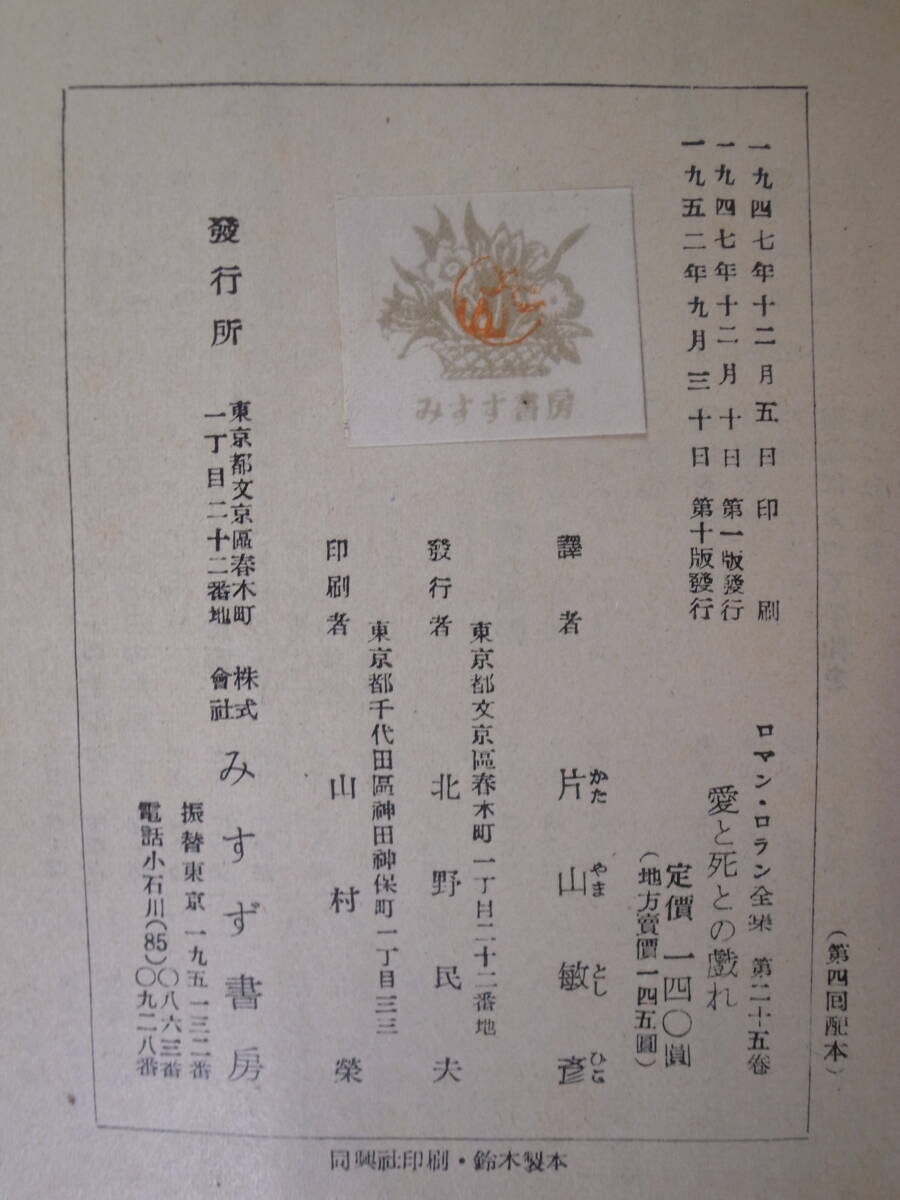 一九四七年十二月五日 印刷
一九四七年十二月十日 第一版發行
一九五二年九月三十日 第十版發行
(第四回配本)
ロマン・ロラン全集 第二十五卷
愛と死との戲れ
定價 一四〇圓
(地方賣價一四五圓)
譯者 片山敏彥
かた やま とし ひこ
發行者 北野民夫
東京都文京區春木町一丁目二十二番地
印刷者 山村榮
東京都千代田區神田神保町一丁目三三
發行所 株式會社 みすず書房
東京都文京區春木町
一丁目二十二番地
振替東京一九五一三二番
電話小石川(85)〇八六三番
〇九二八番
みすず書房
同興社印刷・鈴木製本